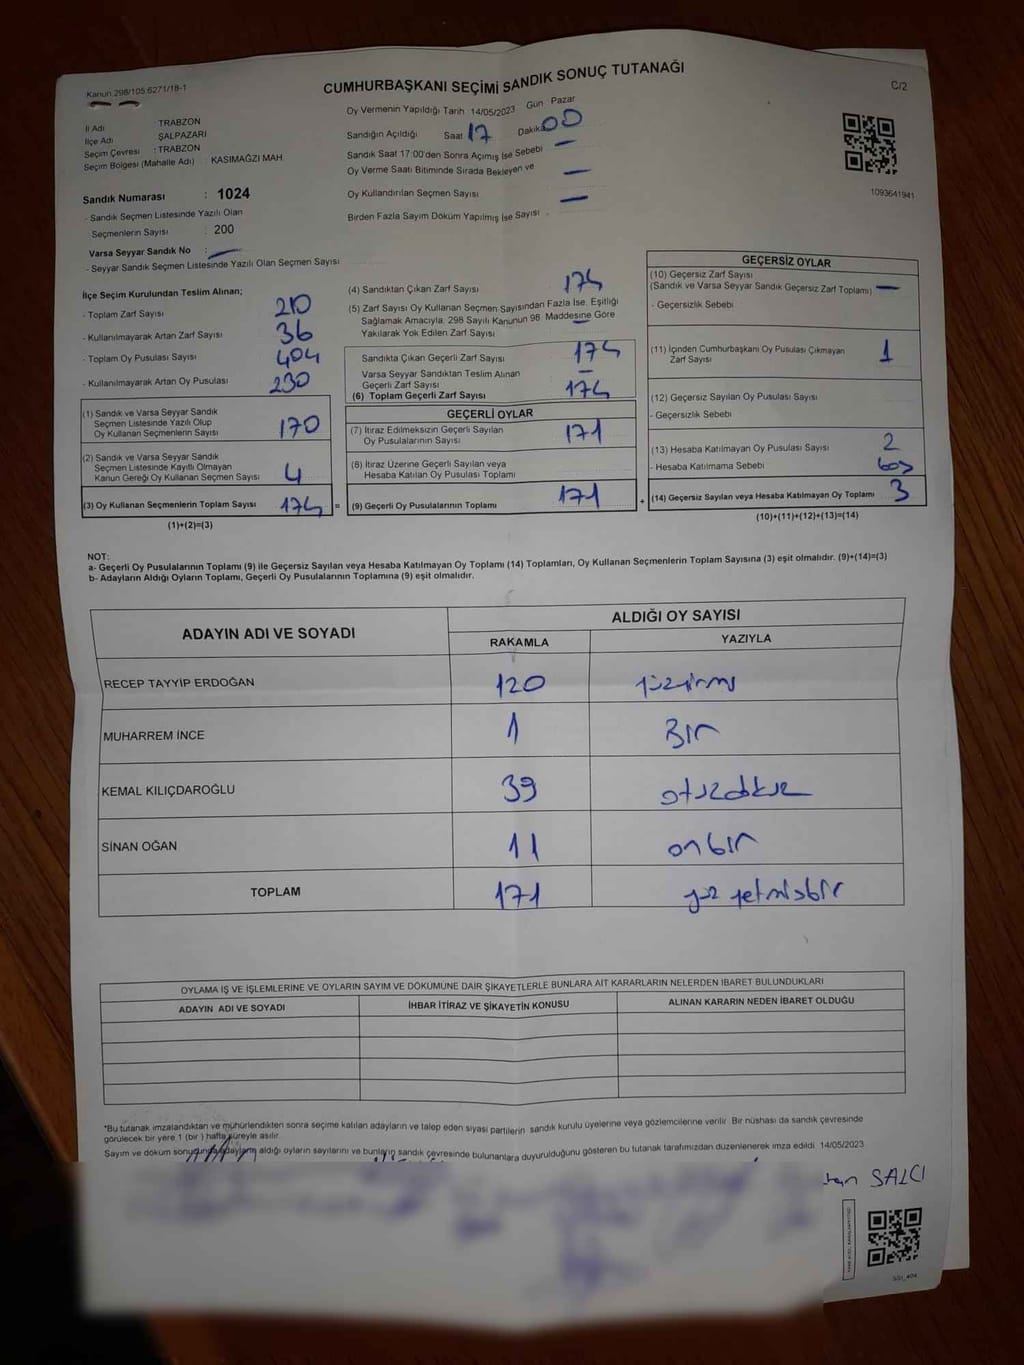 Kanun 298/105,6271/18-1
CUMHURBAŞKANI SEÇİMİ SANDIK SONUÇ TUTANAĞI
C/2
İl Adı : TRABZON
İlçe Adı : ŞALPAZARI
Seçim Çevresi : TRABZON
Seçim Bölgesi (Mahalle Adı) : KASIMAĞZI MAH.
Oy Vermenin Yapıldığı Tarih 14/05/2023 Gün Pazar
Sandığın Açıldığı Saat 17 Dakika 00
Sandık Saat 17:00'den Sonra Açımış İse Sebebi —
Oy Verme Saati Bitiminde Sırada Bekleyen ve
Oy Kullandırılan Seçmen Sayısı —
Birden Fazla Sayım Döküm Yapılmış İse Sayısı —
1093641941
Sandık Numarası : 1024
- Sandık Seçmen Listesinde Yazılı Olan
Seçmenlerin Sayısı : 200
Varsa Seyyar Sandık No : —
- Seyyar Sandık Seçmen Listesinde Yazılı Olan Seçmen Sayısı
İlçe Seçim Kurulundan Teslim Alınan;
- Toplam Zarf Sayısı 210
- Kullanılmayarak Artan Zarf Sayısı 36
- Toplam Oy Pusulası Sayısı 404
- Kullanılmayarak Artan Oy Pusulası 230
(1) Sandık ve Varsa Seyyar Sandık
Seçmen Listesinde Yazılı Olup
Oy Kullanan Seçmenlerin Sayısı 170
(2) Sandık ve Varsa Seyyar Sandık
Seçmen Listesinde Kayıtlı Olmayan
Kanun Gereği Oy Kullanan Seçmen Sayısı 4
(3) Oy Kullanan Seçmenlerin Toplam Sayısı 174 =
(1)+(2)=(3)
(4) Sandıktan Çıkan Zarf Sayısı 174
(5) Zarf Sayısı Oy Kullanan Seçmen Sayısından Fazla İse, Eşitliği
Sağlamak Amacıyla, 298 Sayılı Kanunun 98. Maddesine Göre
Yakılarak Yok Edilen Zarf Sayısı
Sandıkta Çıkan Geçerli Zarf Sayısı 174
Varsa Seyyar Sandıktan Teslim Alınan
Geçerli Zarf Sayısı —
(6) Toplam Geçerli Zarf Sayısı 174
GEÇERLİ OYLAR
(7) İtiraz Edilmeksizin Geçerli Sayılan
Oy Pusulalarının Sayısı 171
(8) İtiraz Üzerine Geçerli Sayılan veya
Hesaba Katılan Oy Pusulası Toplamı
(9) Geçerli Oy Pusulalarının Toplamı 171 +
GEÇERSİZ OYLAR
(10) Geçersiz Zarf Sayısı
(Sandık ve Varsa Seyyar Sandık Geçersiz Zarf Toplamı) —
- Geçersizlik Sebebi
(11) İçinden Cumhurbaşkanı Oy Pusulası Çıkmayan
Zarf Sayısı 1
(12) Geçersiz Sayılan Oy Pusulası Sayısı
- Geçersizlik Sebebi
(13) Hesaba Katılmayan Oy Pusulası Sayısı 2
- Hesaba Katılmama Sebebi boş
(14) Geçersiz Sayılan veya Hesaba Katılmayan Oy Toplamı 3
(10)+(11)+(12)+(13)=(14)
NOT:
a- Geçerli Oy Pusulalarının Toplamı (9) ile Geçersiz Sayılan veya Hesaba Katılmayan Oy Toplamı (14) Toplamları, Oy Kullanan Seçmenlerin Toplam Sayısına (3) eşit olmalıdır. (9)+(14)=(3)
b- Adayların Aldığı Oyların Toplamı, Geçerli Oy Pusulalarının Toplamına (9) eşit olmalıdır.
ADAYIN ADI VE SOYADI
ALDIĞI OY SAYISI
RAKAMLA YAZIYLA
RECEP TAYYİP ERDOĞAN 120 yüzyirmi
MUHARREM İNCE 1 Bir
KEMAL KILIÇDAROĞLU 39 otuzdokuz
SİNAN OĞAN 11 onbir
TOPLAM 171 yüz yetmişbir
OYLAMA İŞ VE İŞLEMLERİNE VE OYLARIN SAYIM VE DÖKÜMÜNE DAİR ŞİKAYETLERLE BUNLARA AİT KARARLARIN NELERDEN İBARET BULUNDUKLARI
ADAYIN ADI VE SOYADI İHBAR İTİRAZ VE ŞİKAYETİN KONUSU ALINAN KARARIN NEDEN İBARET OLDUĞU
*Bu tutanak imzalandıktan ve mühürlendikten sonra seçime katılan adayların ve talep eden siyasi partilerin sandık kurulu üyelerine veya gözlemcilerine verilir. Bir nüshası da sandık çevresinde
görülecek bir yere 1 (bir ) hafta süreyle asılır.
Sayım ve döküm sonucunda adayların aldığı oyların sayılarını ve bunların sandık çevresinde bulunanlara duyurulduğunu gösteren bu tutanak tarafımızdan düzenlenerek imza edildi. 14/05/2023
SALCI
SS1_404